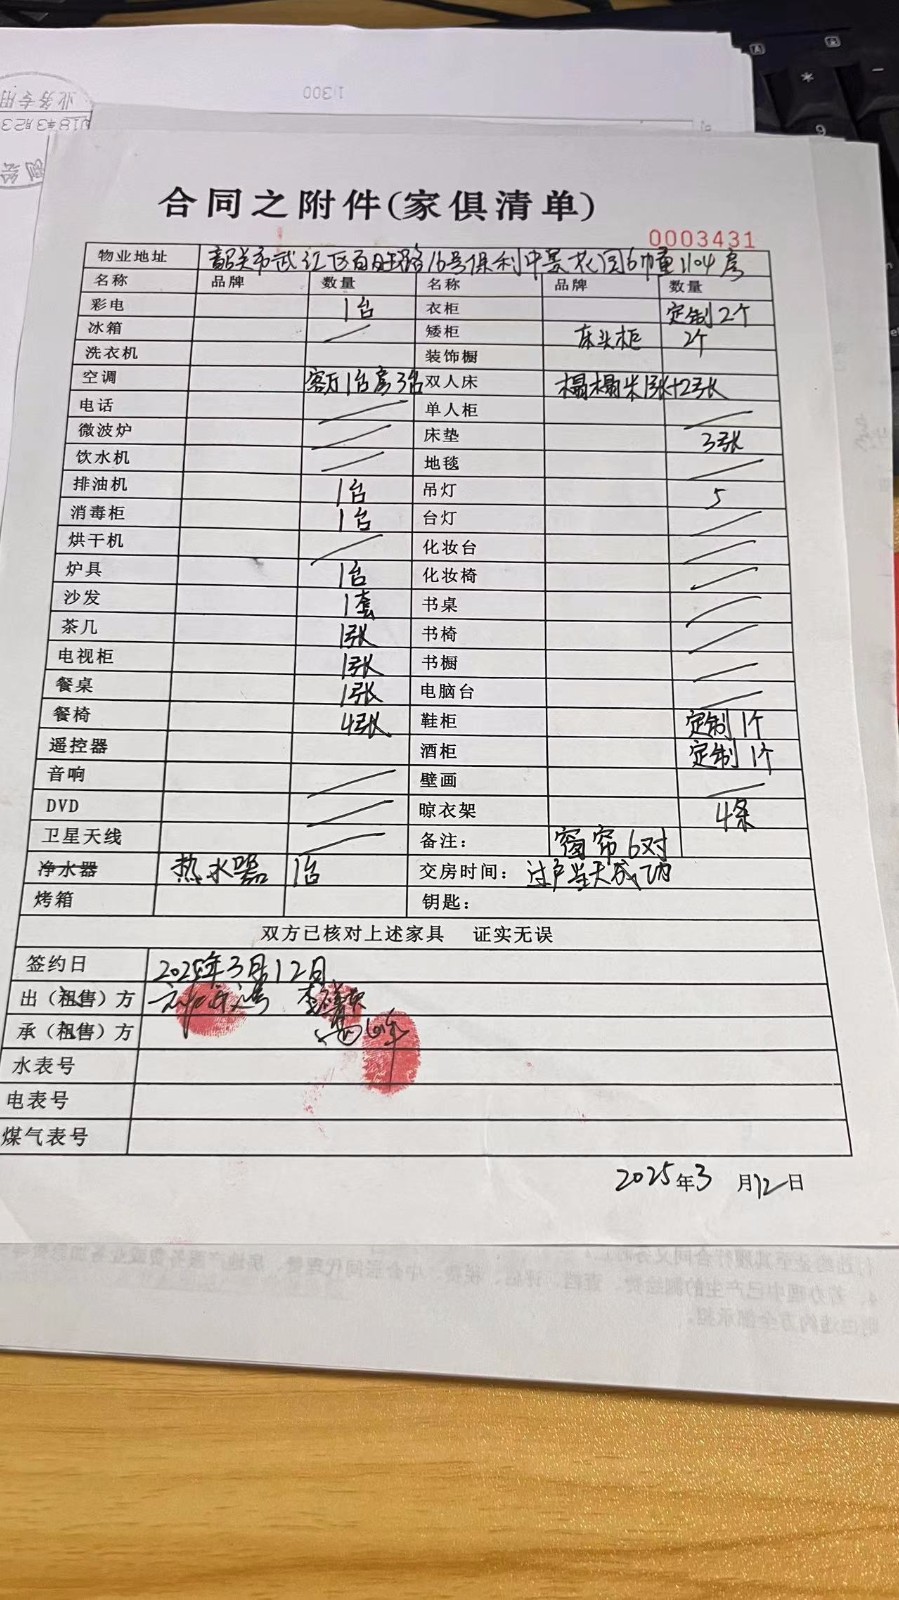 1:300
业务专用
合同之附件(家俱清单)
0003431
物业地址 韶关市武江区百旺路16号保利中景花园6幢1104房
名称 品牌 数量 名称 品牌 数量
彩电 1台 衣柜 定制2个
冰箱 / 矮柜 床头柜 2个
洗衣机 装饰橱
空调 客厅1台房3台 双人床 榻榻米1张+2张
电话 / 单人柜 /
微波炉 / 床垫 3张
饮水机 / 地毯 /
排油机 1台 吊灯 5
消毒柜 1台 台灯 /
烘干机 / 化妆台 /
炉具 1台 化妆椅 /
沙发 1套 书桌 /
茶几 1张 书椅 /
电视柜 1张 书橱 /
餐桌 1张 电脑台 /
餐椅 4张 鞋柜 定制1个
遥控器 酒柜 定制1个
音响 / 壁画 /
DVD / 晾衣架 4条
卫星天线 / 备注： 窗帘6对
净水器 热水器 1台 交房时间：过户当天成功
烤箱 钥匙：
双方已核对上述家具 证实无误
签约日 2025年3月12日
出（租售）方
承（租售）方
水表号
电表号
煤气表号
2025年3月12日